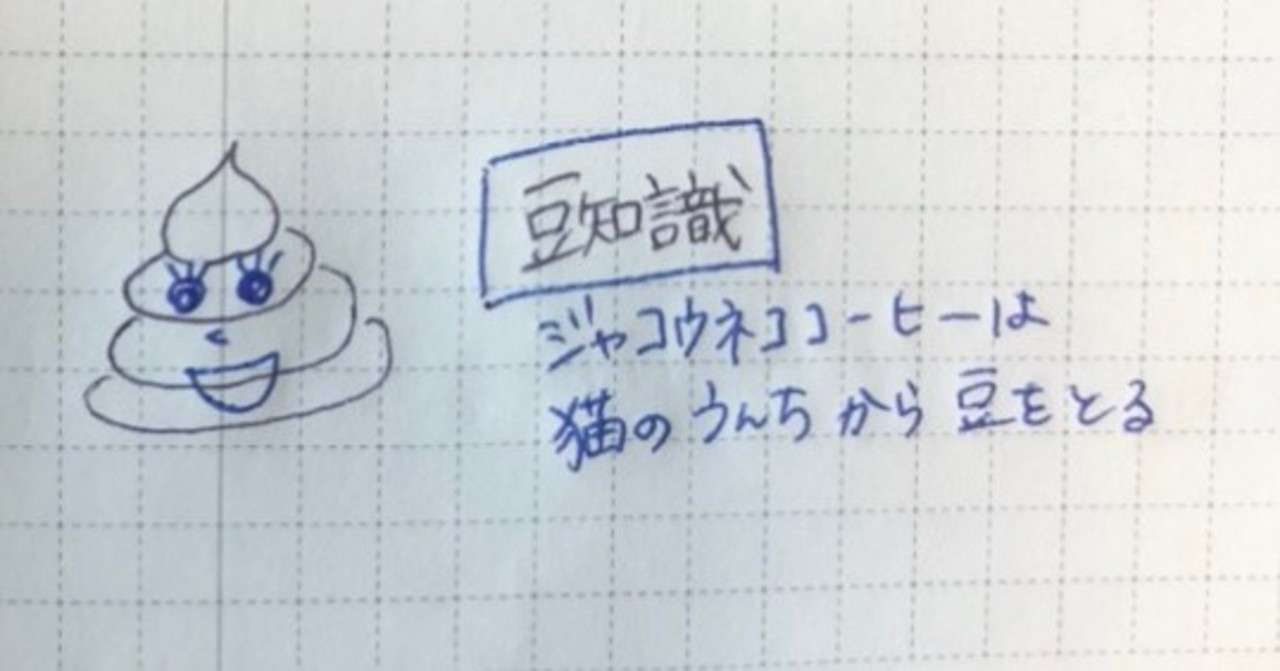 豆知識
ジャコウネココーヒーは
猫のうんちから豆をとる